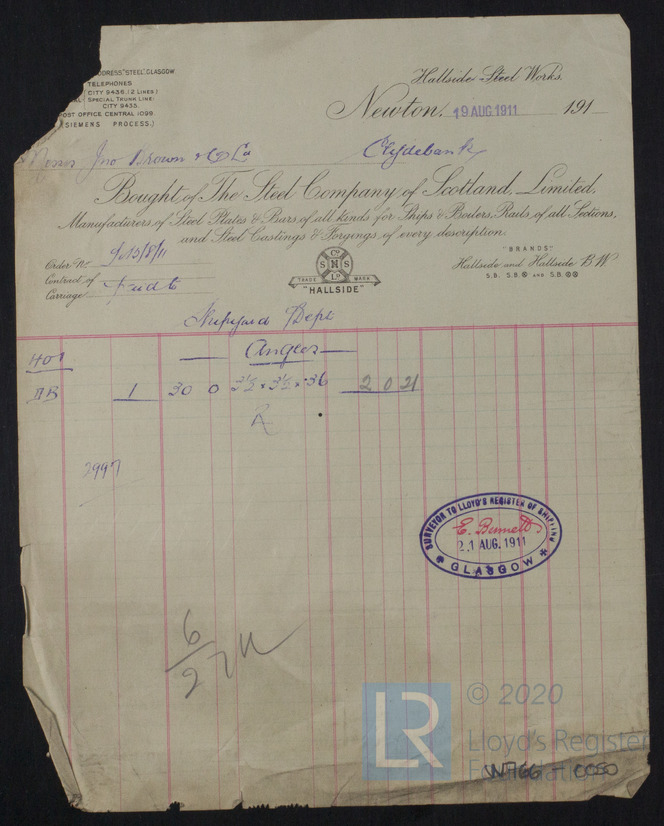 ADDRESS, "STEEL", GLASGOW
TELEPHONES
CITY 9436. (2 LINES)
SPECIAL TRUNK LINE:
CITY 9435.
POST OFFICE CENTRAL 1099.
(SIEMENS PROCESS.)
Hallside Steel Works.
Newton, 19 AUG 1911 191
Messrs Jno Brown & Co Ld Clydebank
Bought of The Steel Company of Scotland, Limited,
Manufacturers of Steel Plates & Bars of all kinds for Ships & Boilers, Rails of all Sections,
and Steel Castings & Forgings of every description.
Order No.
Contract of
Carriage
Co
S H S
Ld
TRADE MARK
"HALLSIDE"
"BRANDS"
Hallside and Hallside B.W
S.B. S.B AND S.B.
Shipyard Dept
401 Angles
1 30 0 3½ x 3½ x .36 2 0 21
R
2997
SURVEYOR TO LLOYD'S REGISTER OF SHIPPING
E. Bennett
21 AUG. 1911
GLASGOW
6
27
LR
© 2020
Lloyd's Register
Foundation
W766 - 0050